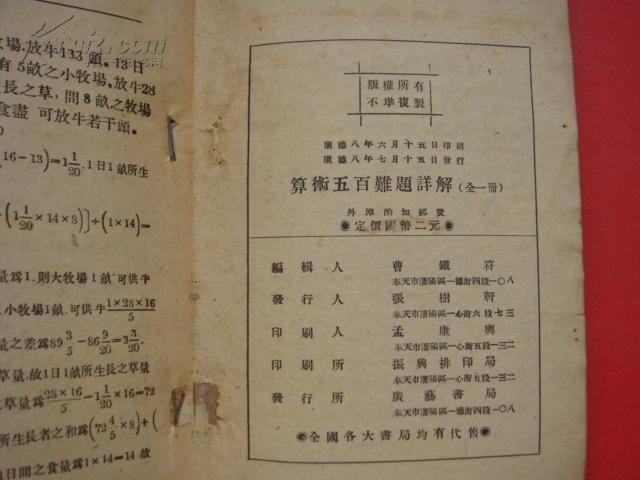 牧場.放牛133頭.13日
有5畝之小牧場,放牛28
長之草,問8畝之牧場
食盡 可放牛若干頭.
16−13)=1 1/20.1日1畝所生
(1 1/20×14×8)]÷(1×14)=
量爲1.則大牧場1畝可供牛
小牧場1畝.可供牛1×28×16/5
量之差爲89 3/5−86 9/20=3 3/20.
草量.故1日1畝所生長之草量
草量爲28×16/5−1 1/20×16=72
所生長者之和爲(72 4/5×8)+(
日間之食量爲1×14=14.故
版權所有
不準複製
康德八年六月十五日印刷
康德八年七月十五日發行
算術五百難題詳解(全一冊)
外埠酌加郵費
◉定價國幣二元◉
編輯人 曹鐵符
奉天市瀋陽區一德街四段一〇八
發行人 張樹軒
奉天市瀋陽區一心街六段七三
印刷人 孟康興
奉天市瀋陽區一心街五段一三二
印刷所 振興排印局
奉天市瀋陽區一心街五段一三二
發行所 廣藝書局
奉天市瀋陽區一德街四段一〇八
◉全國各大書局均有代售◉